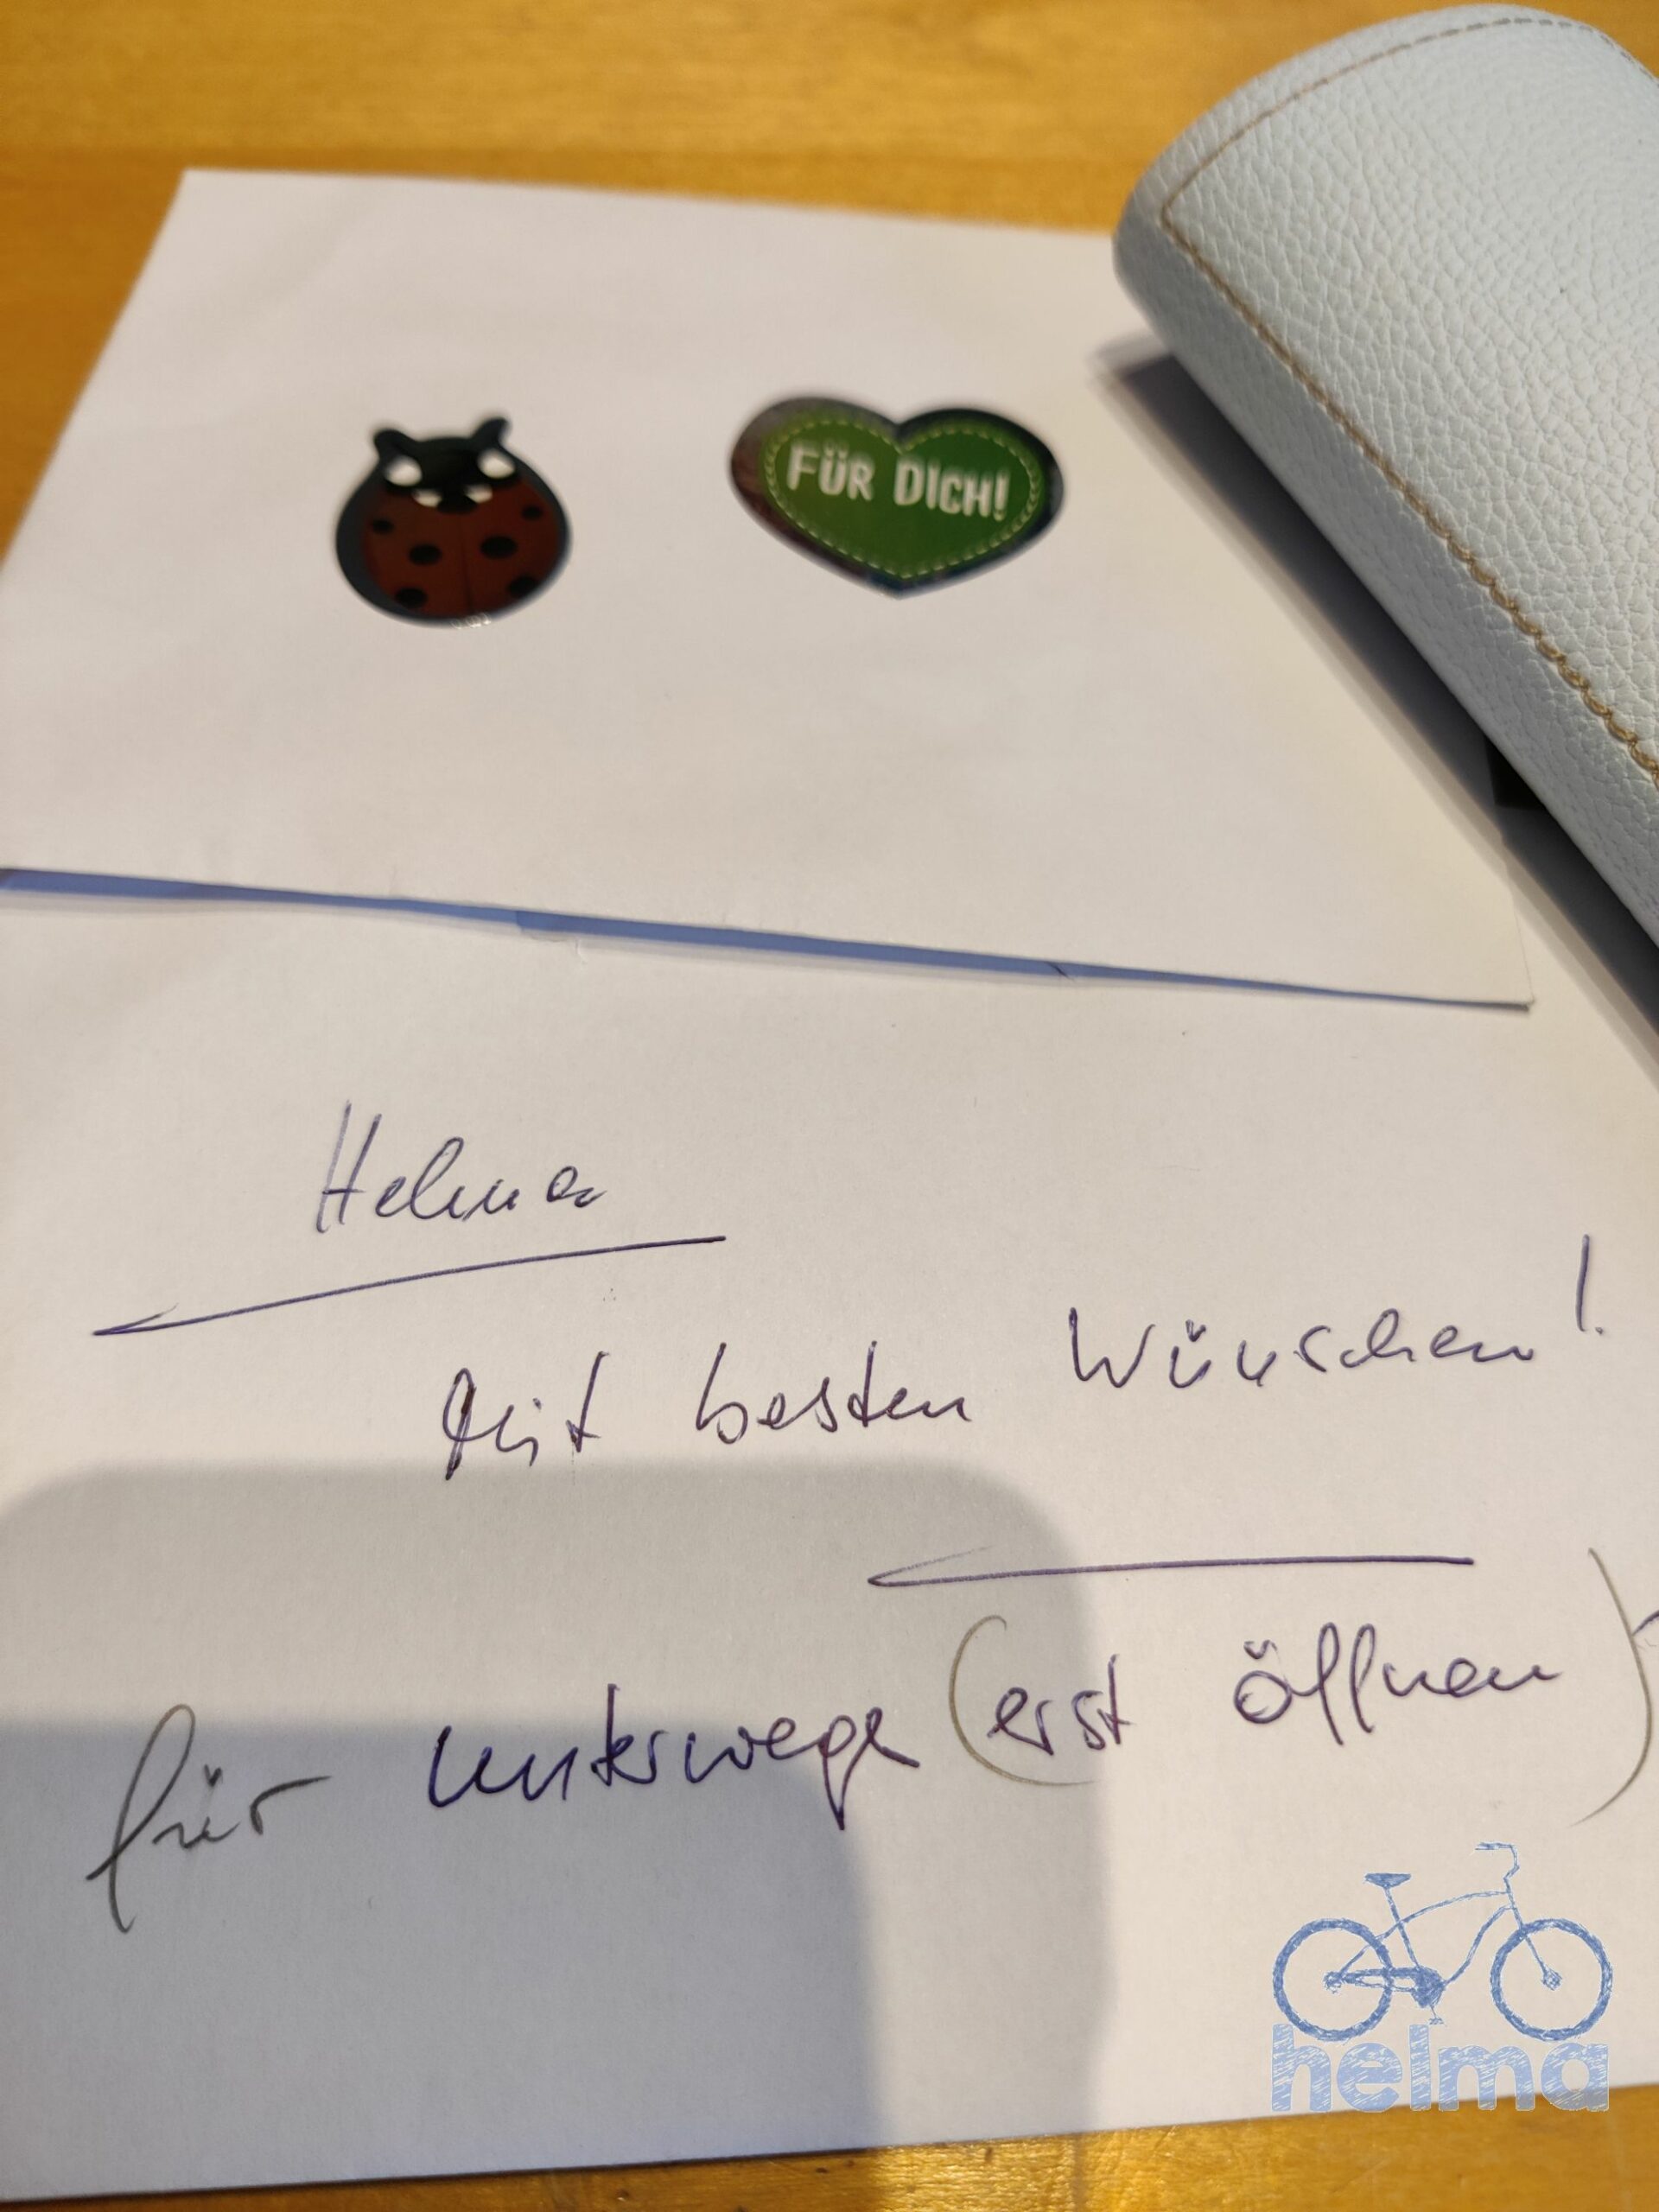 FÜR DICH!
Helma
Mit besten Wünschen!
für unterwegs (erst öffnen)
helma